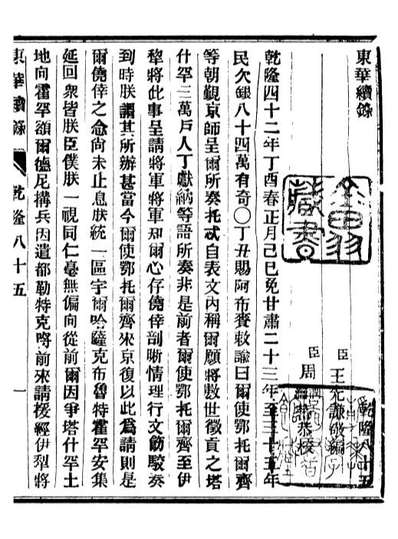 東華續錄
乾隆八十五
臣王先謙敬編
臣周
恭校
乾隆四十二年丁酉春正月己巳免甘肅二十三年至三十五年
民欠銀八十四萬有奇○丁丑賜阿布賚敕諭曰爾使鄂托爾齊
等朝覲京師呈爾所奏托忒自表文內稱爾願將數世徵貢之塔
什罕三萬戶人丁獻納等語所奏非是前者爾使鄂托爾齊至伊
犂將此事呈請將軍將軍知爾心存僥倖剖晰情理行文飭駁奏
到時朕謂其所辦甚當今爾使鄂托爾齊來京復以此為請則是
爾僥倖之念尚未止息朕統一區宇爾哈薩克布魯特霍罕安集
延回衆皆朕臣僕朕一視同仁毫無偏向從前爾因爭塔什罕土
地向霍罕額爾德尼構兵因遣都勒特克哷前來請援經伊犂將
東華續錄
乾隆八十五
一